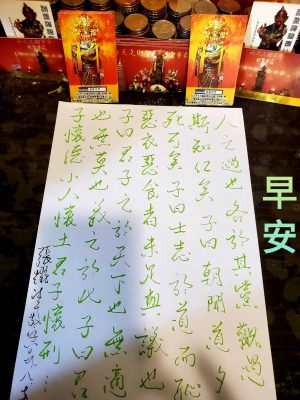 人之過也各於其黨觀過
斯知仁矣子曰朝聞道夕
死可矣子曰士志於道而恥
惡衣惡食者未足與議也
子曰君子之於天下也無適
也無莫也義之於比子曰君
子懷德小人懷土君子懷刑⋯
早安